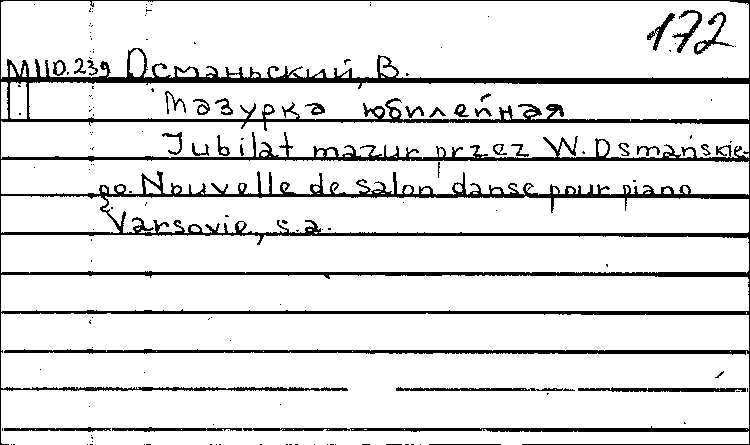 172
М110.239 Османьский, В.
Мазурка юбилейная
Jubilat mazur przez W. Osmańskie-
go. Nouvelle de salon danse pour piano
Varsovie, s.a.